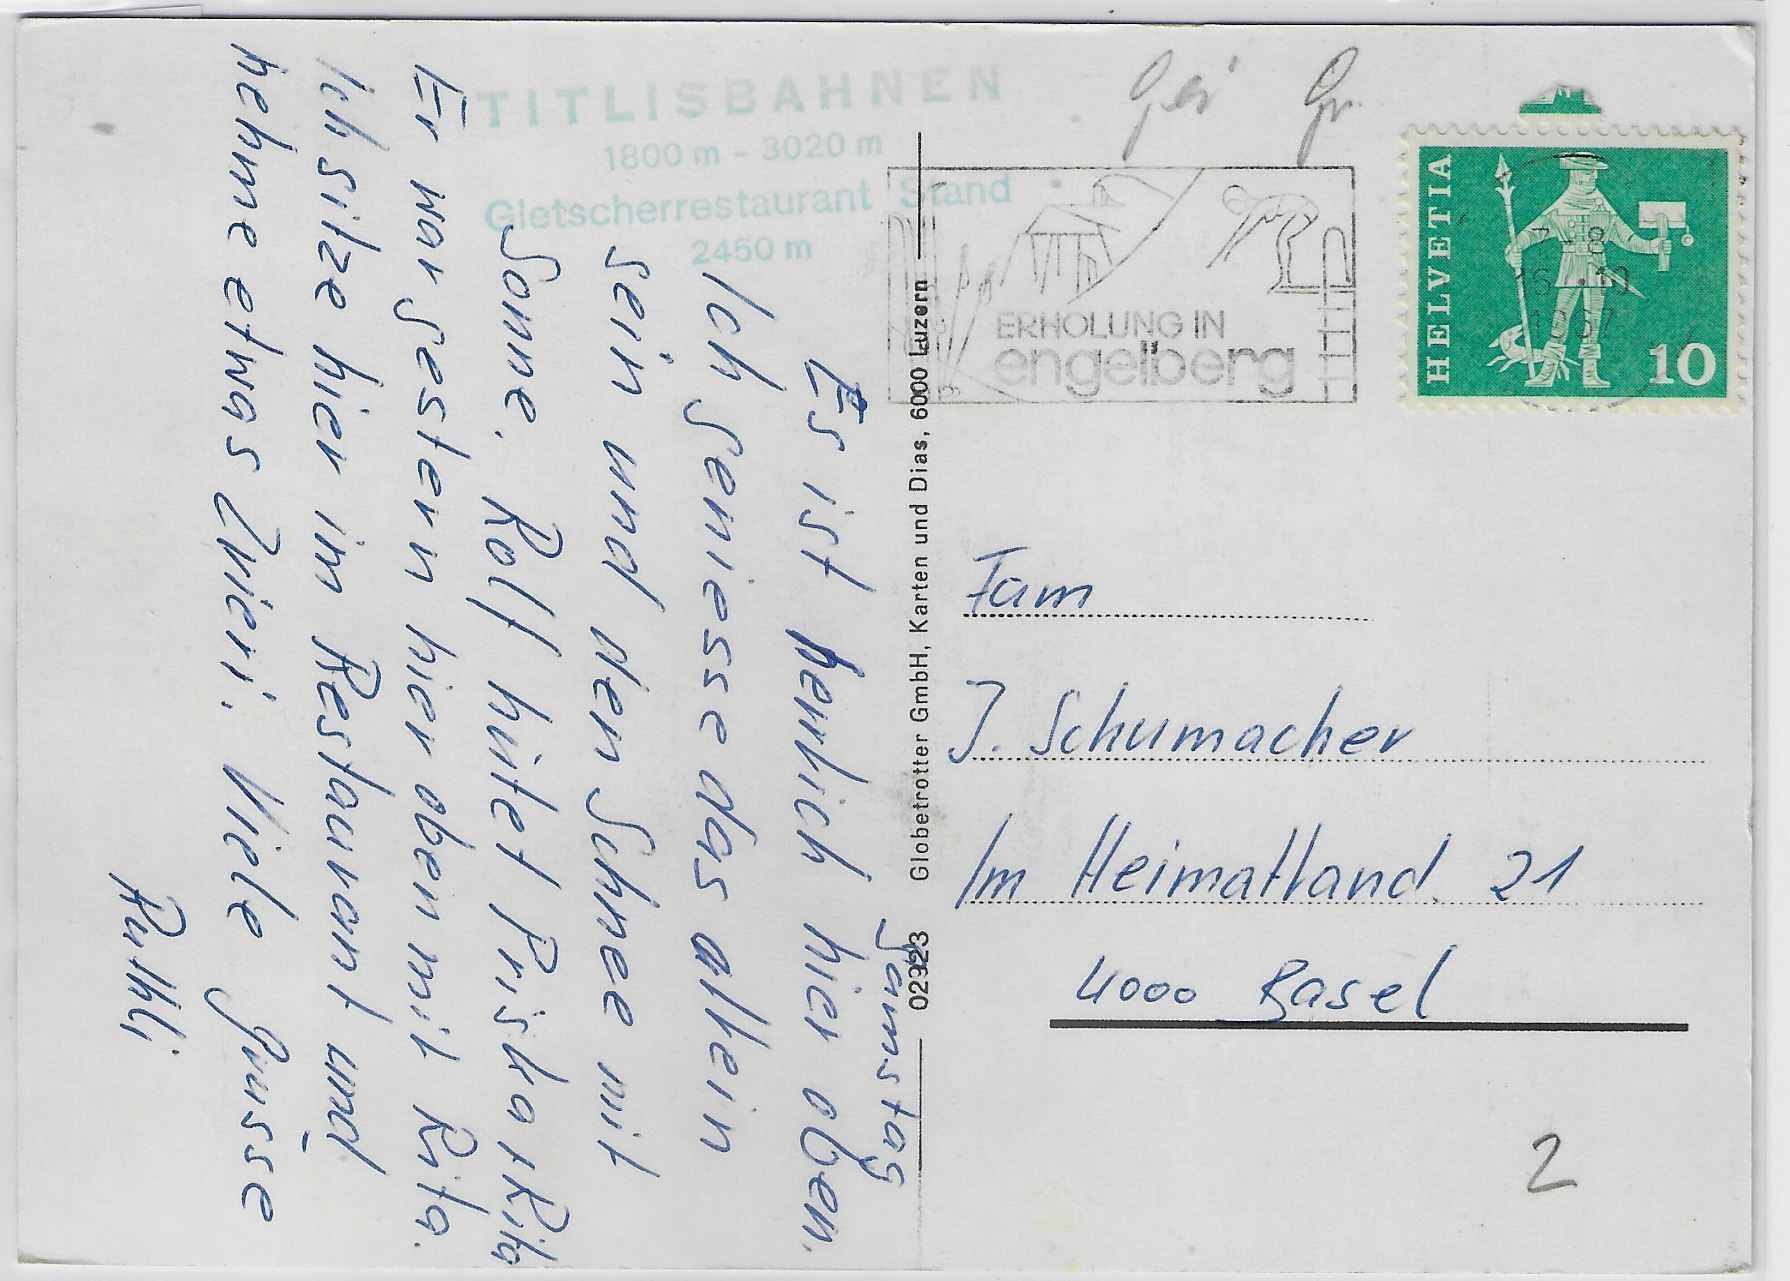 TITLISBAHNEN
1800 m - 3020 m
Gletscherrestaurant Stand
2450 m
Samstag
Es ist herrlich hier oben.
Ich geniesse das allein
sein und den Schnee mit
Sonne. Rolf hütet Priska + Rita
Er war gestern hier oben mit Rita.
Ich sitze hier im Restaurant und
nehme etwas Zvieri. Viele Grüsse
Ruthli
02923 Globetrotter GmbH, Karten und Dias, 6000 Luzern
ERHOLUNG IN
engelberg
HELVETIA
10
Fam
J. Schumacher
Im Heimatland 21
4000 Basel
2